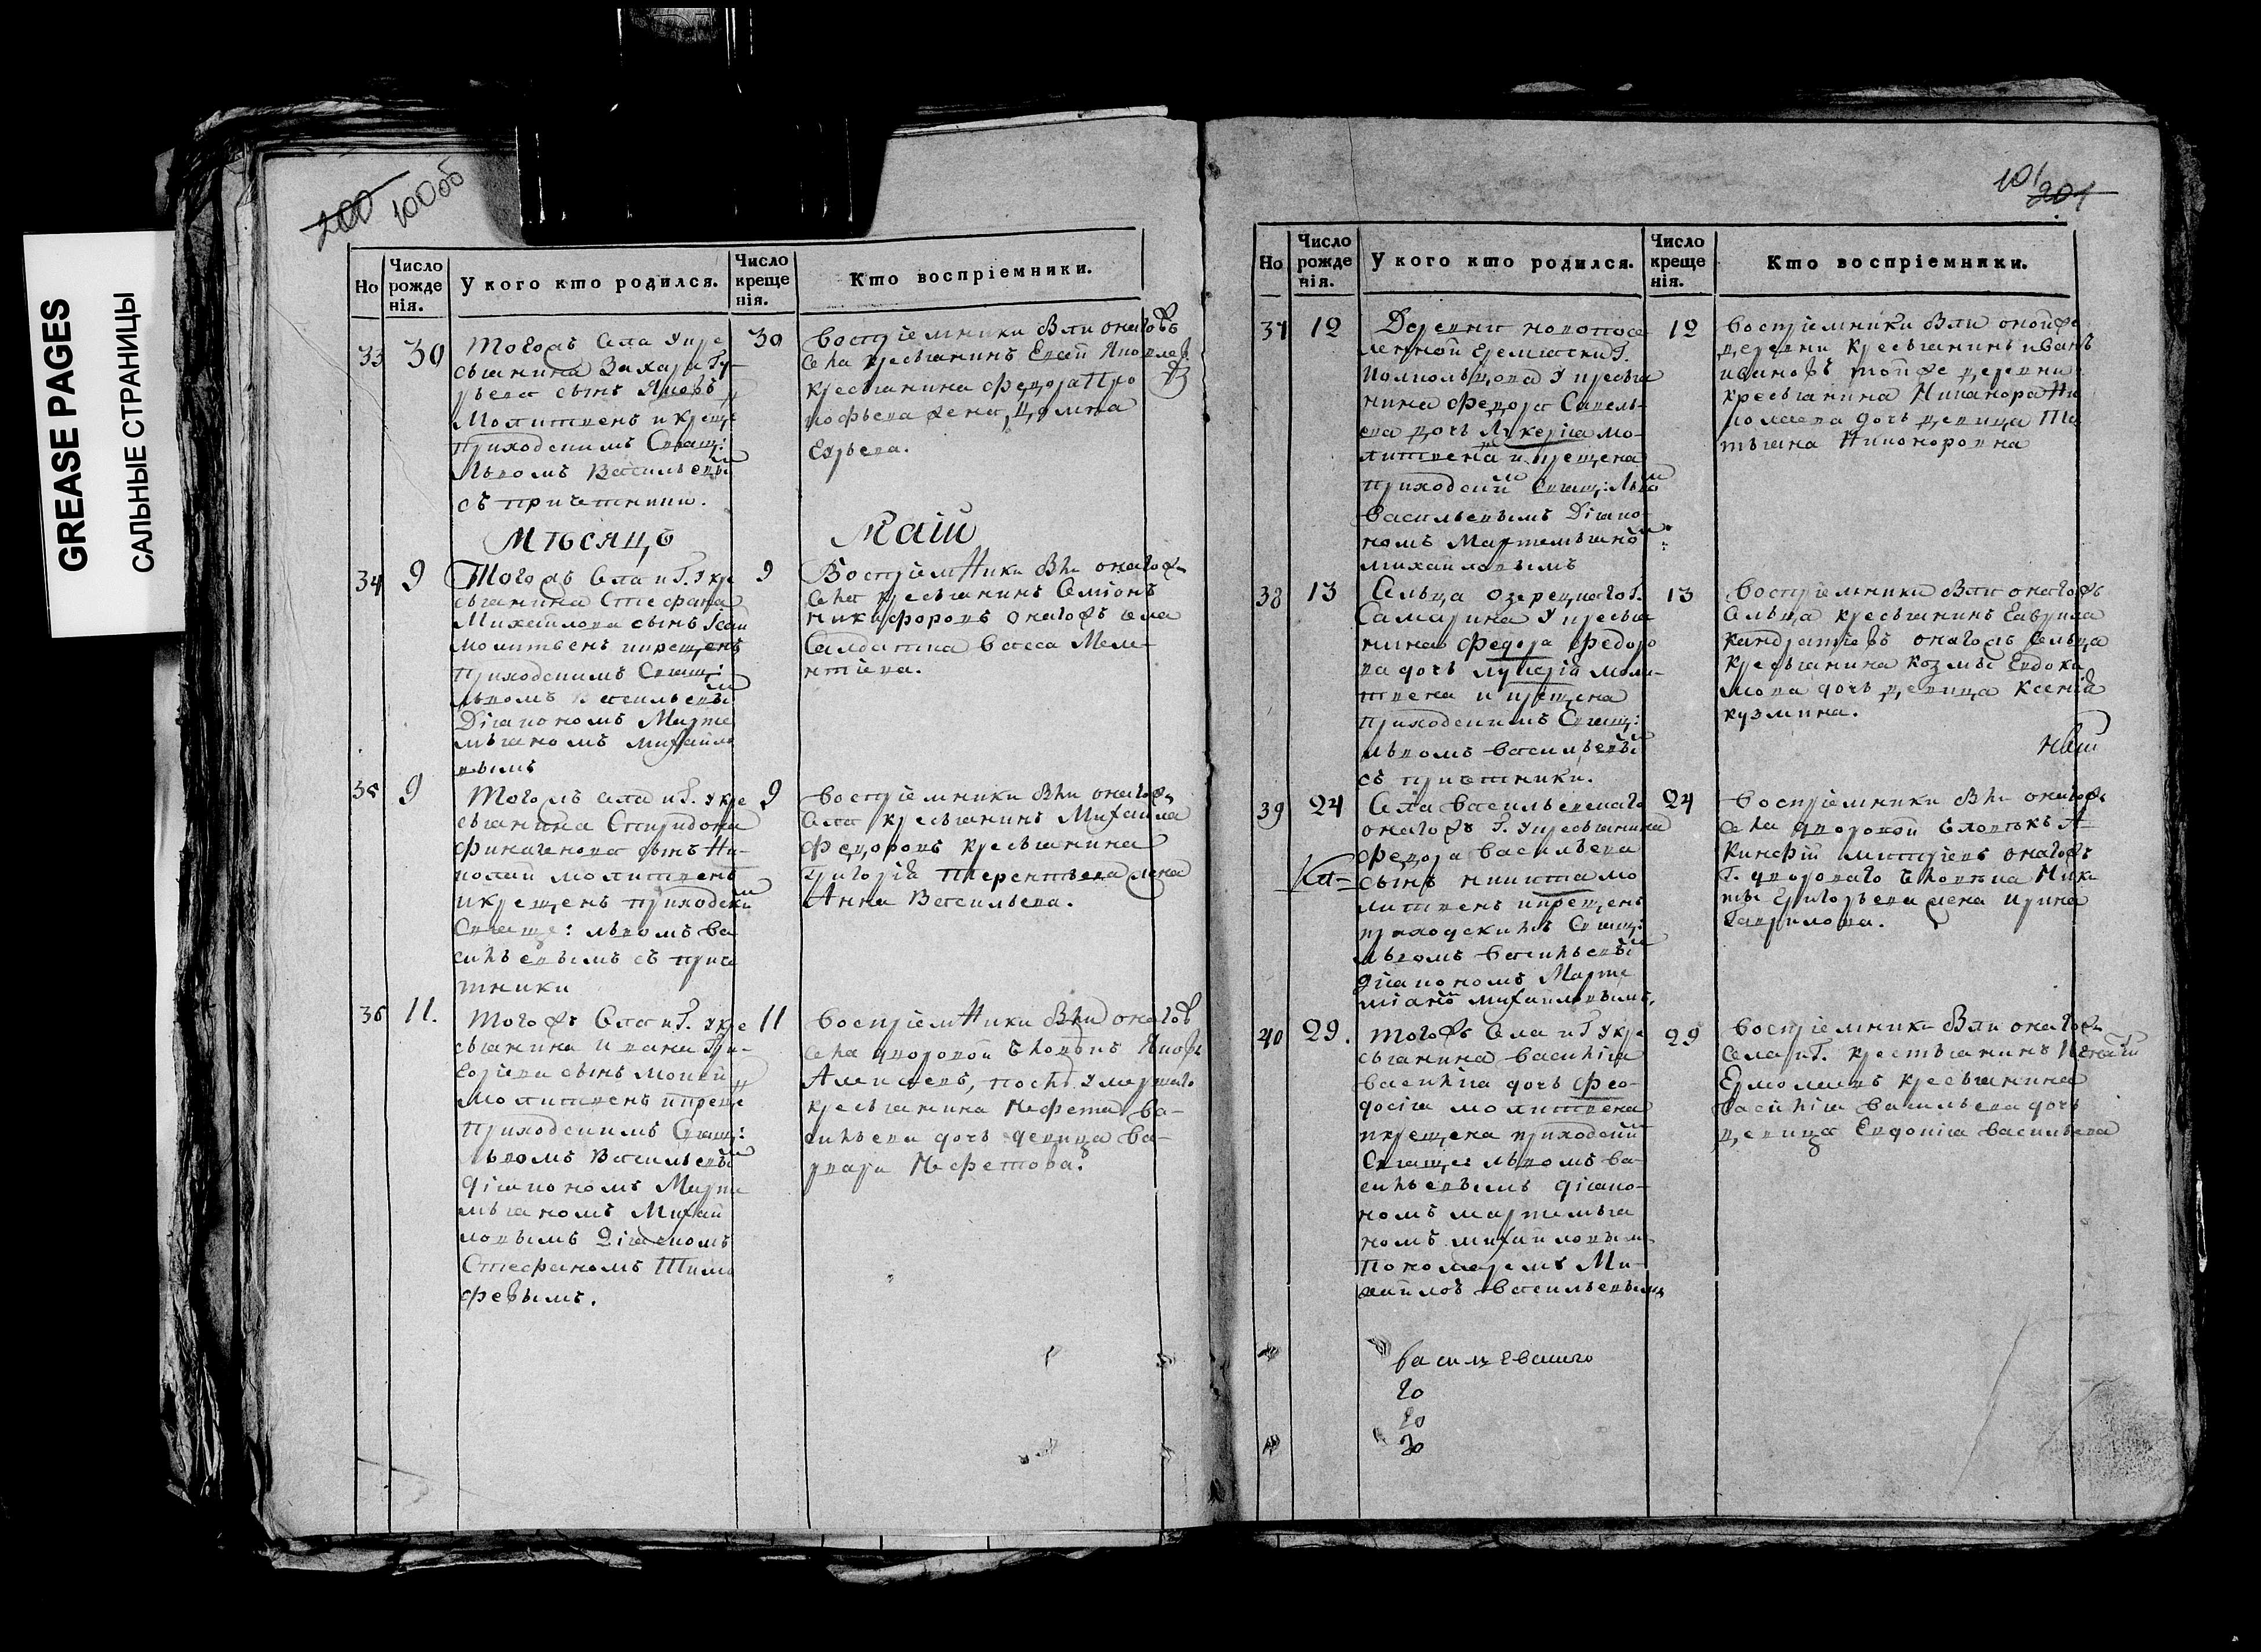 GREASE PAGES
САЛЬНЫЕ СТРАНИЦЫ
200 100об
Но
Число рожде нія.
У кого кто родился.
Число креще нія.
Кто воспріемники.
33 30
Тогожъ села У кре
стьянина Захара Гу
рьева сынъ Яковъ
Молитвенъ и крещ:
приходскимъ Свящ:
Львомъ Васильевы
съ причетники.
30
воспріемники Были онагожъ
села крестьянинъ
крестьянина федора Про
кофьева жена Домна
Мѣсяцъ Маій
34 9
Тогожъ Села и Г. У кре
стьянина Стефана
Михайлова сынъ
молитвенъ и крещенъ
приходскимъ Свящ:
львомъ Васильевы
Діакономъ Марте
мьяномъ михайло
вымъ
9
Воспріемники Были онагожъ
села крестьянинъ Семіонъ
никифоровъ онагожъ села
Салдатка
35 9
Тогожъ села и Г. У кре
стьянина Спиридона
сынъ Ни-
колай молитвенъ
и крещенъ приходски
Свяще: львомъ ва
сильевымъ съ приче
тники
9
воспріемники Были онагожъ
Села крестьянинъ Михаила
Федоровъ крестьянина
Григорія Терентьева жена
Анна Васильева.
36 11.
Тогожъ Села и Г. У кре
стьянина Ивана Гри-
горіева сынъ
Молитвенъ и креще
приходскимъ Свящ:
львомъ Васильевы
діакономъ Марте
мьяномъ Михай
ловымъ Діячкомъ
Стефаномъ Тимо
феевымъ.
11
воспріемники Были онагожъ
села дворовой человѣкъ Яковъ
Алексѣевъ, послѣ умершаго
крестьянина Мефета ва-
сильева дочь девица Ва-
рвара Мефетова.
101 201
Но
Число рожде нія.
У кого кто родился.
Число креще нія.
Кто воспріемники.
37 12
Деревни новопосе
ленной Г.
У крестья
нина Федора Савель-
ева дочь Лукерія мо-
литвена и крещена
приходски Свящ: Льво
васильевымъ Діако-
номъ Мартемьяно
михайловымъ
12
воспріемники Были онойже
деревни крестьянинъ иванъ
ивановъ тойже деревни
крестьянина Никанора Ни
колаева дочь девица Та
тьяна Никонорова
38 13
Сельца озерецкаго Г.
Самарина У крестья
нина Федора Федоро
ва дочь лукерія моли-
твена и крещена
приходскимъ Свящ:
львомъ васильевы
съ причетники.
13
воспріемники Были онагожъ
Сельца крестьянинъ Гаврила
Кандратьевъ онагожъ сельца
крестьянина козмы Евдоки
мова дочь девица Ксенія
кузмина.
39 24
Села васильевскаго
онагожъ Г. У крестьянина
Федора васильева
сынъ никита мо
литвенъ и крещенъ
приходскимъ Свящ:
львомъ васильевы
діакономъ Марте
міано михайловымъ.
24
воспріемники Были онагожъ
села дворовой человѣкъ А-
Кинфій онагожъ
Г. двороваго человѣка Ники
ты Григорьева жена ирина
Гаврилова.
40 29.
Тогожъ Села и Г У кре
стьянина василія
василіа дочь Фео-
досія молитвена
и крещена приходски
Свяще львомъ ва-
сильевымъ діако-
номъ мартемьа
номъ михайловымъ
пономаремъ Ми-
хайлов васильевымъ
29
воспріемники Были онагожъ
села и Г. крестьянинъ
Ермолаевъ крестьянина
василія васильева дочь
девица Евдокіа васильева
20
20
20